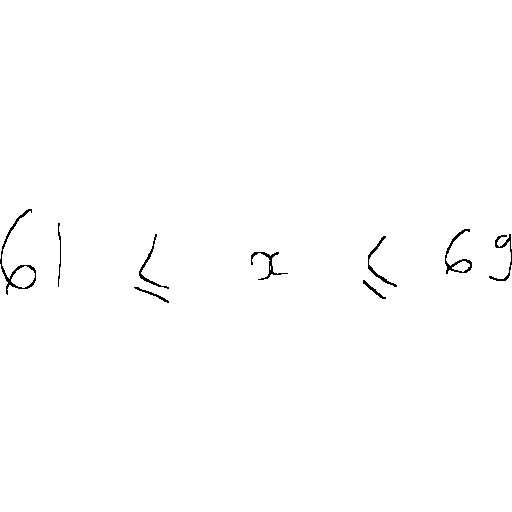 61 ≤ x ≤ 69